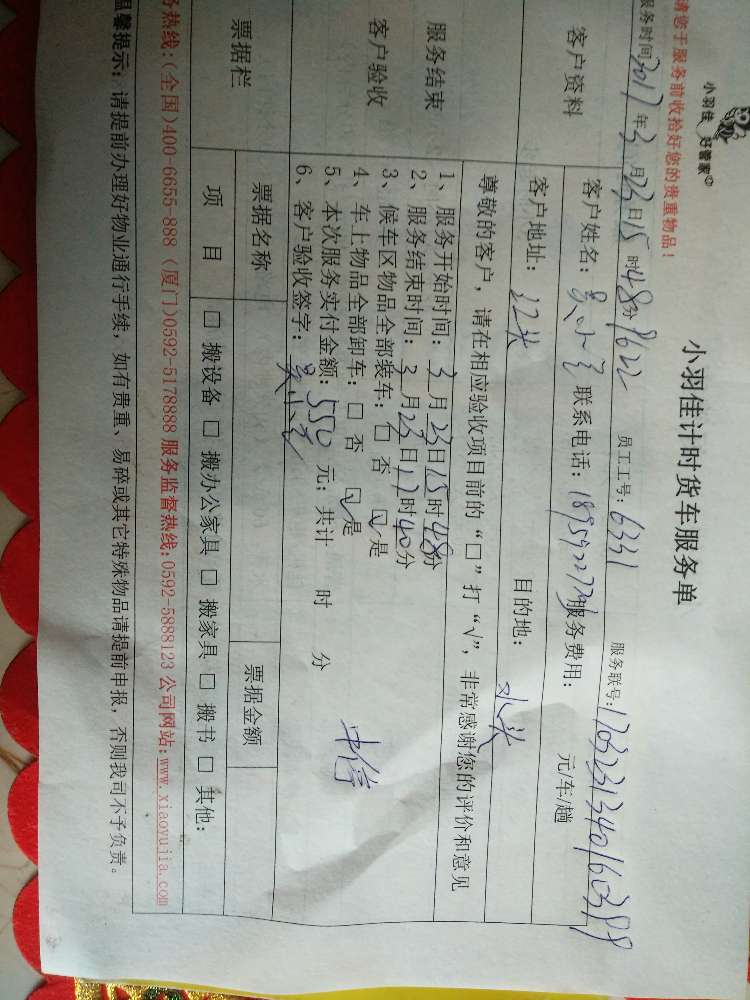 小羽佳 好管家
小羽佳计时货车服务单
请您于服务前收拾好您的贵重物品！
服务时间2017年3月23日15时48分 员工工号：6331 服务联号：170323134016038
客户资料
客户姓名：吴小 联系电话： 服务费用： 元/车/趟
客户地址：江头 目的地：水头
服务结束
客户验收
尊敬的客户，请在相应验收项目前的“□”打“√”，非常感谢您的评价和意见
1、服务开始时间：3月23日15时48分
2、服务结束时间：3月23日17时40分
3、候车区物品全部装车：□ 否 ☑ 是
4、车上物品全部卸车：□ 否 ☑ 是
5、本次服务实付金额：550 元；共计 时 分
6、客户验收签字：吴小
票据栏
票据名称 票据金额
项 目 □ 搬设备 □ 搬办公家具 □ 搬家具 □ 搬书 □ 其他：
务热线：(全国)400-6655-888 (厦门)0592-5178888 服务监督热线:0592-5888123 公司网站:www.xiaoyujia.com
温馨提示：请提前办理好物业通行手续，如有贵重、易碎或其它特殊物品请提前申报，否则我司不予负责。